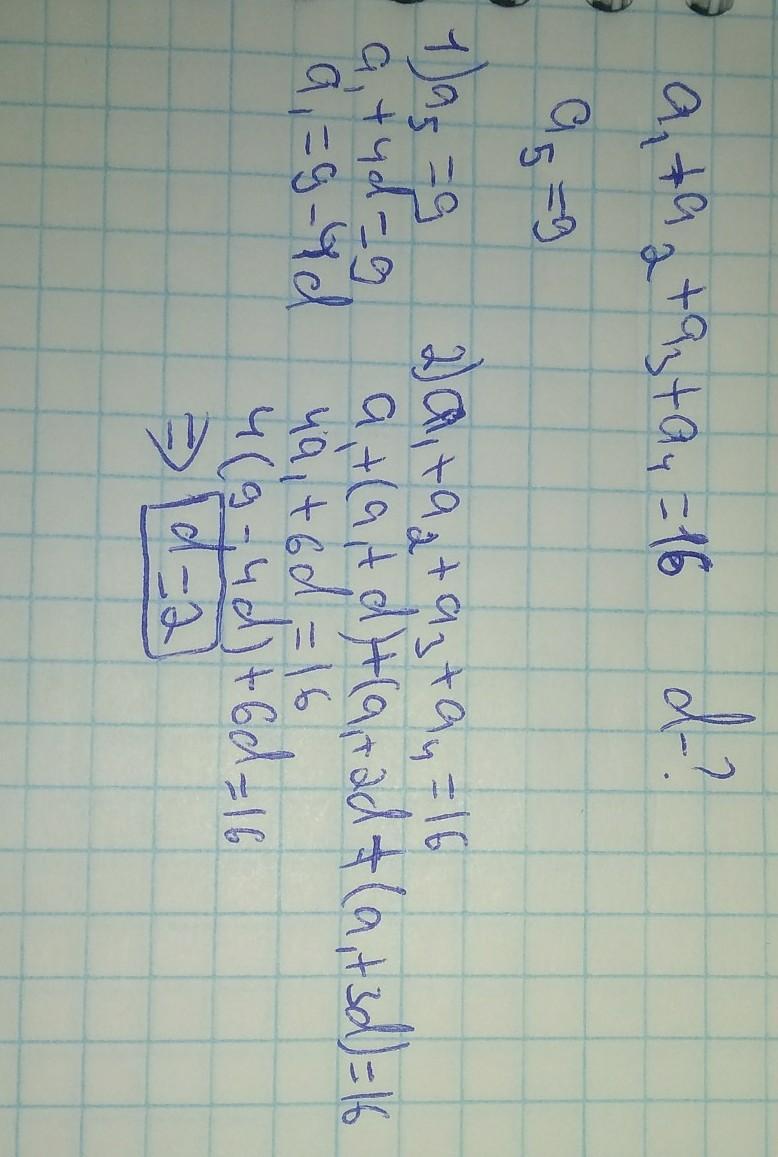 a₁+a₂+a₃+a₄=16 d-?
a₅=9
1) a₅=9
a₁+4d=9
a₁=9-4d
2) a₁+a₂+a₃+a₄=16
a₁+(a₁+d)+(a₁+2d+(a₁+3d)=16
4a₁+6d=16
4(9-4d)+6d=16
⇒ d=2